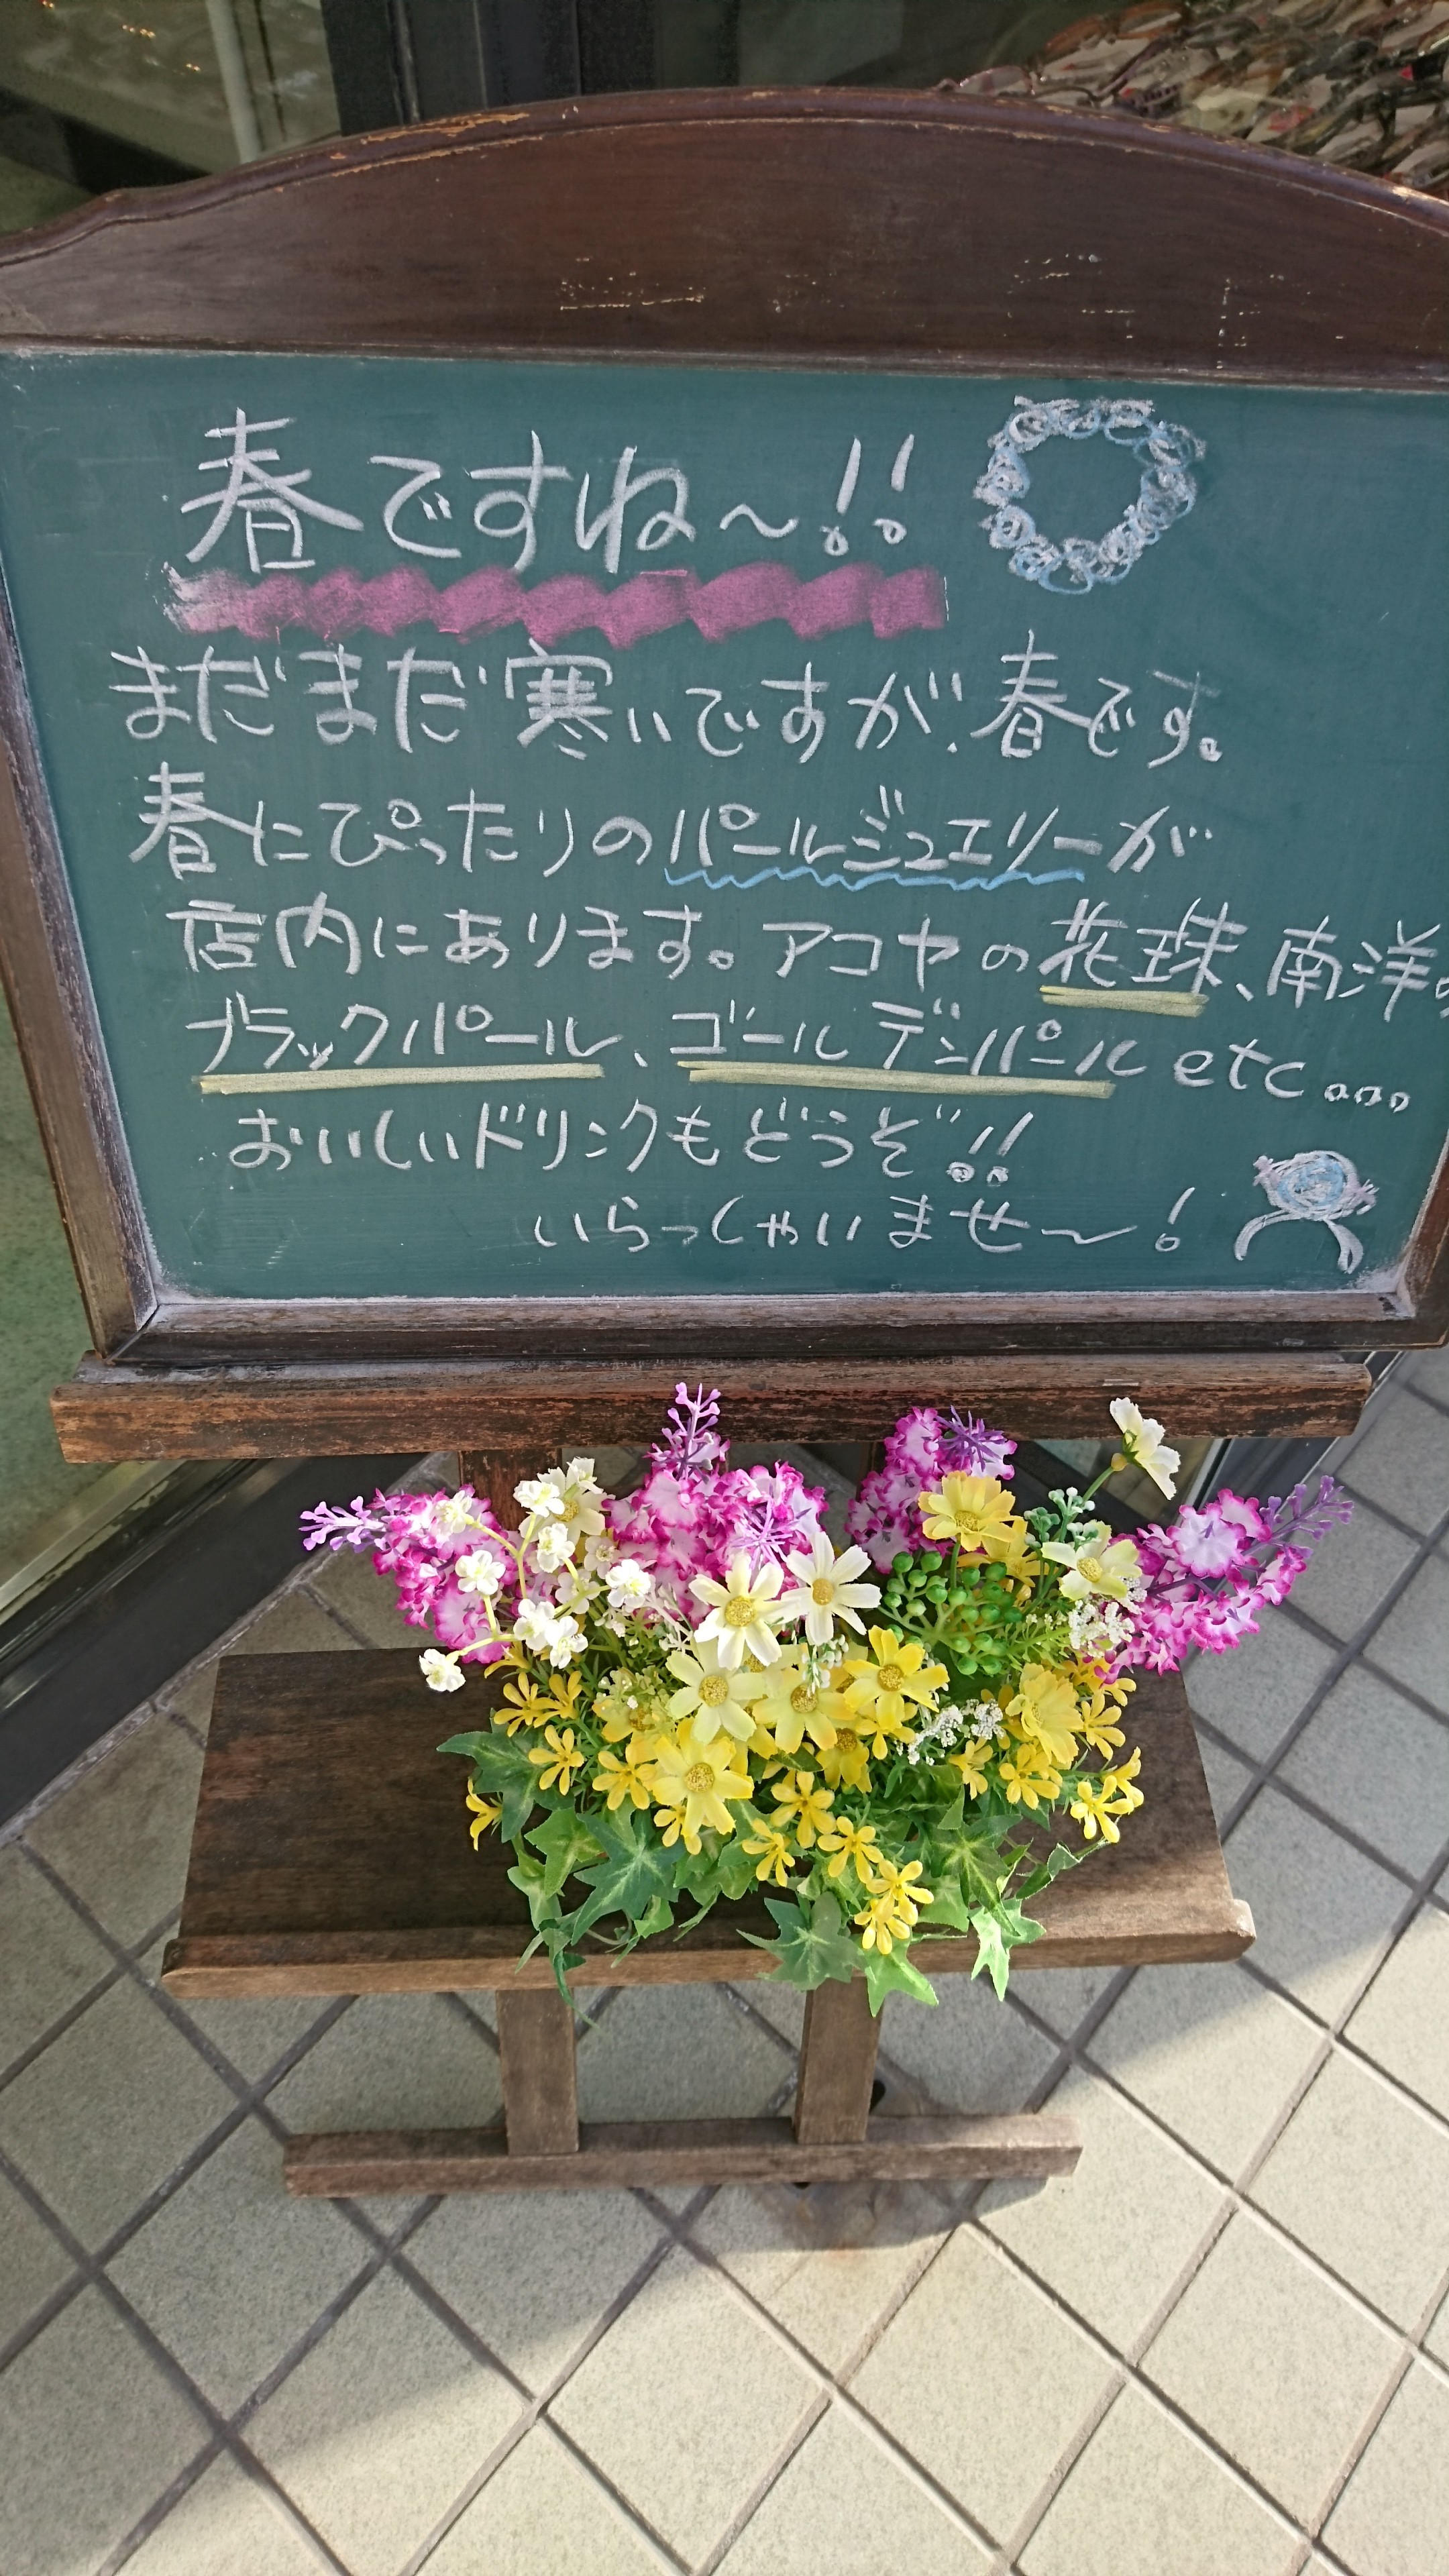 春ですね〜!!
まだまだ寒いですが、春です。
春にぴったりのパールジュエリーが
店内にあります。アコヤの花珠、南洋の
ブラックパール、ゴールデンパール etc....
おいしいドリンクもどうぞ!!
いらっしゃいませ〜!